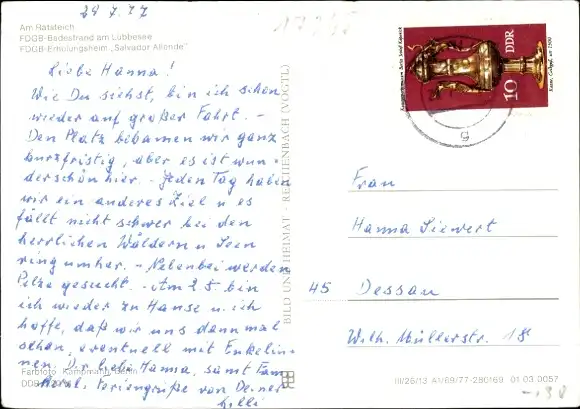 28.7.77
Am Ratsteich
FDGB-Badestrand am Lübbesee
FDGB-Erholungsheim „Salvador Allende"
Liebe Hanna!
Wie Du siehst, bin ich schon
wieder auf großer Fahrt. -
Den Platz bekamen wir ganz
kurzfristig, aber es ist wun-
derschön hier. - Jeden Tag haben
wir ein anderes Ziel u es
fällt nicht schwer bei den
herrlichen Wäldern u Seen
ringumher. - Nebenbei werden
Pilze gesucht. - Am 25. bin
ich wieder zu Hause u. ich
hoffe, daß wir uns dann mal
sehen, eventuell mit Enkelin-
nen. Dir liebe Hanna, samt Fam
herzl. Feriengrüße von Deiner
Lilli
Farbfoto Kampmann, Berlin
BILD UND HEIMAT · REICHENBACH (VOGTL)
DDR
10
Frau
Hanna Siewert
45 Dessau
Wilh. Müllerstr. 18
III/26/13 A1/69/77-280169 01 03 0057